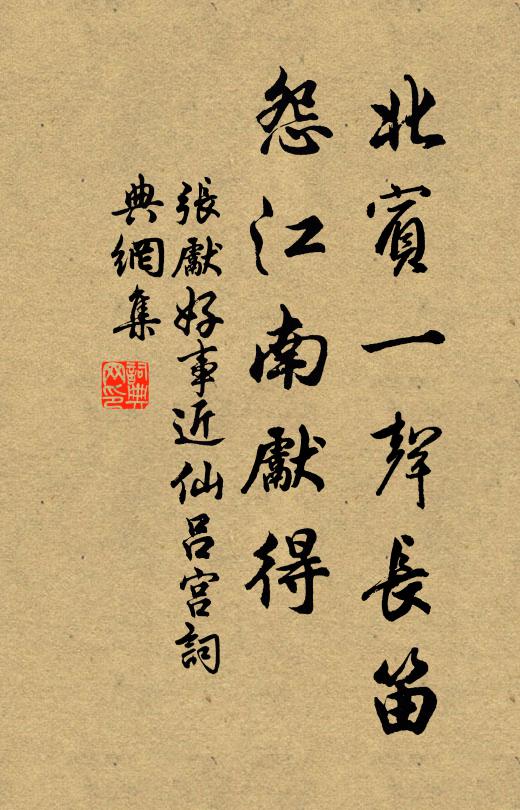 北賓一聲長笛
怨江南獻得
張獻好事近仙呂宮詞
典網集
詞典
网印